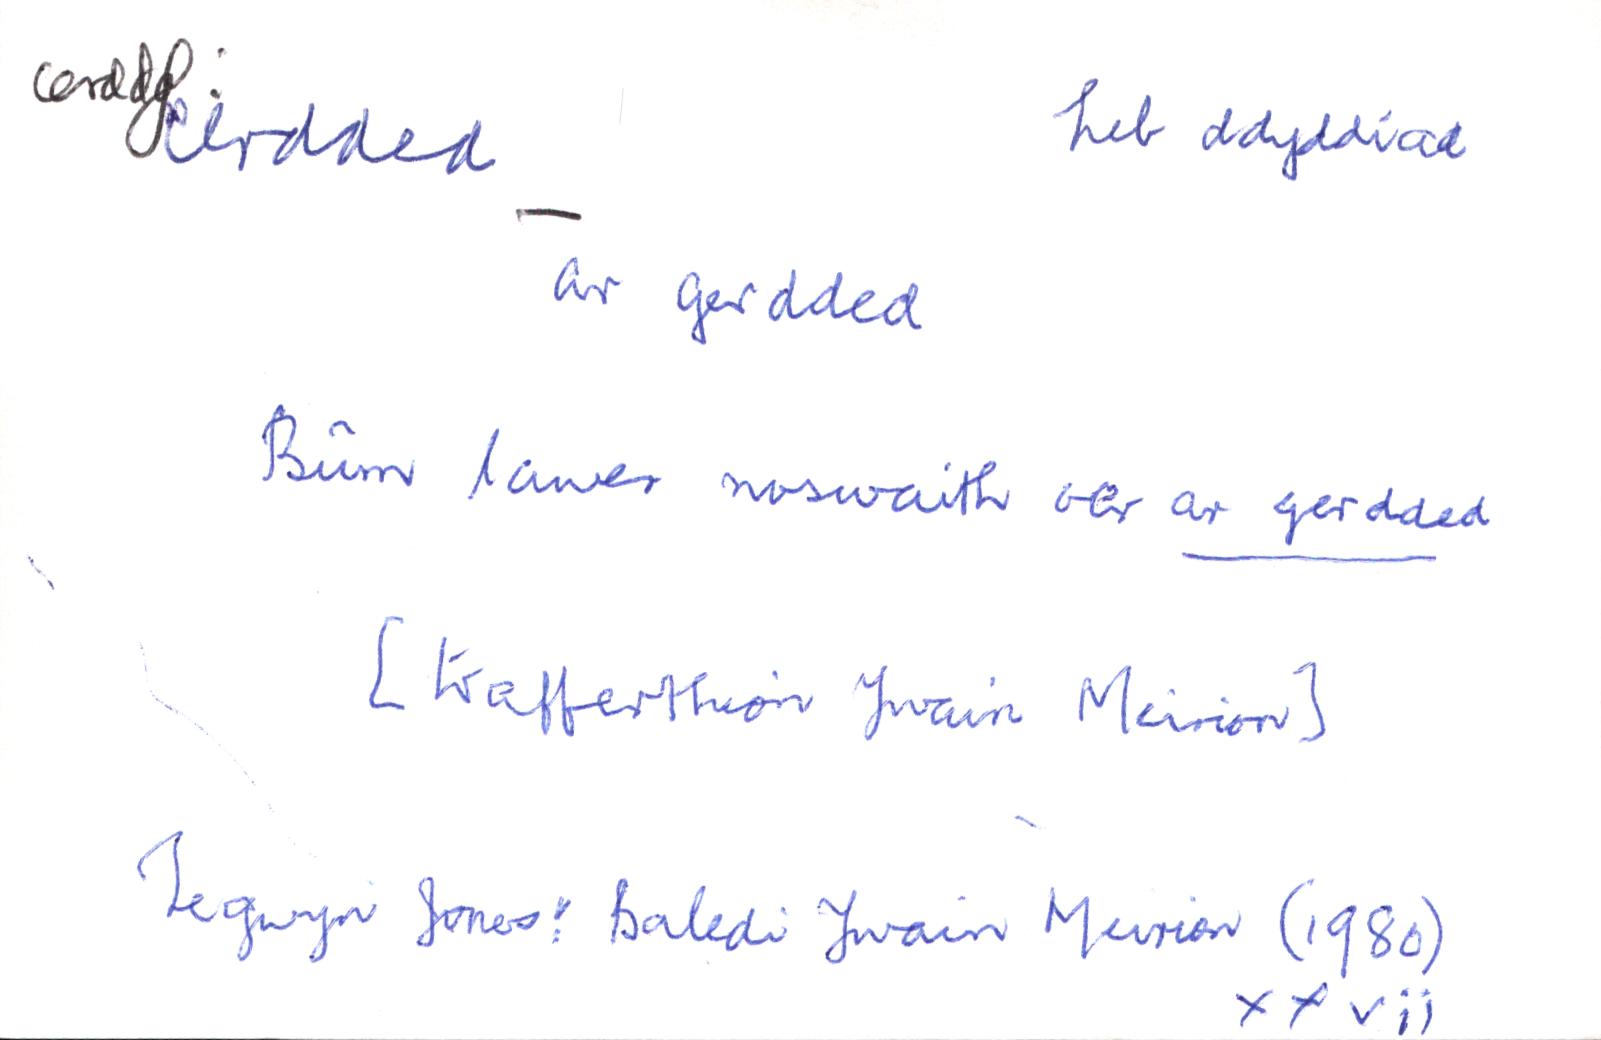 cerddaf:
cerdded heb ddyddiad
ar gerdded
Bûm lawer noswaith oer ar gerdded
[trafferthion Ywain Meirion]
Tegwyn Jones: Baledi Ywain Meirion (1980)
xxvii